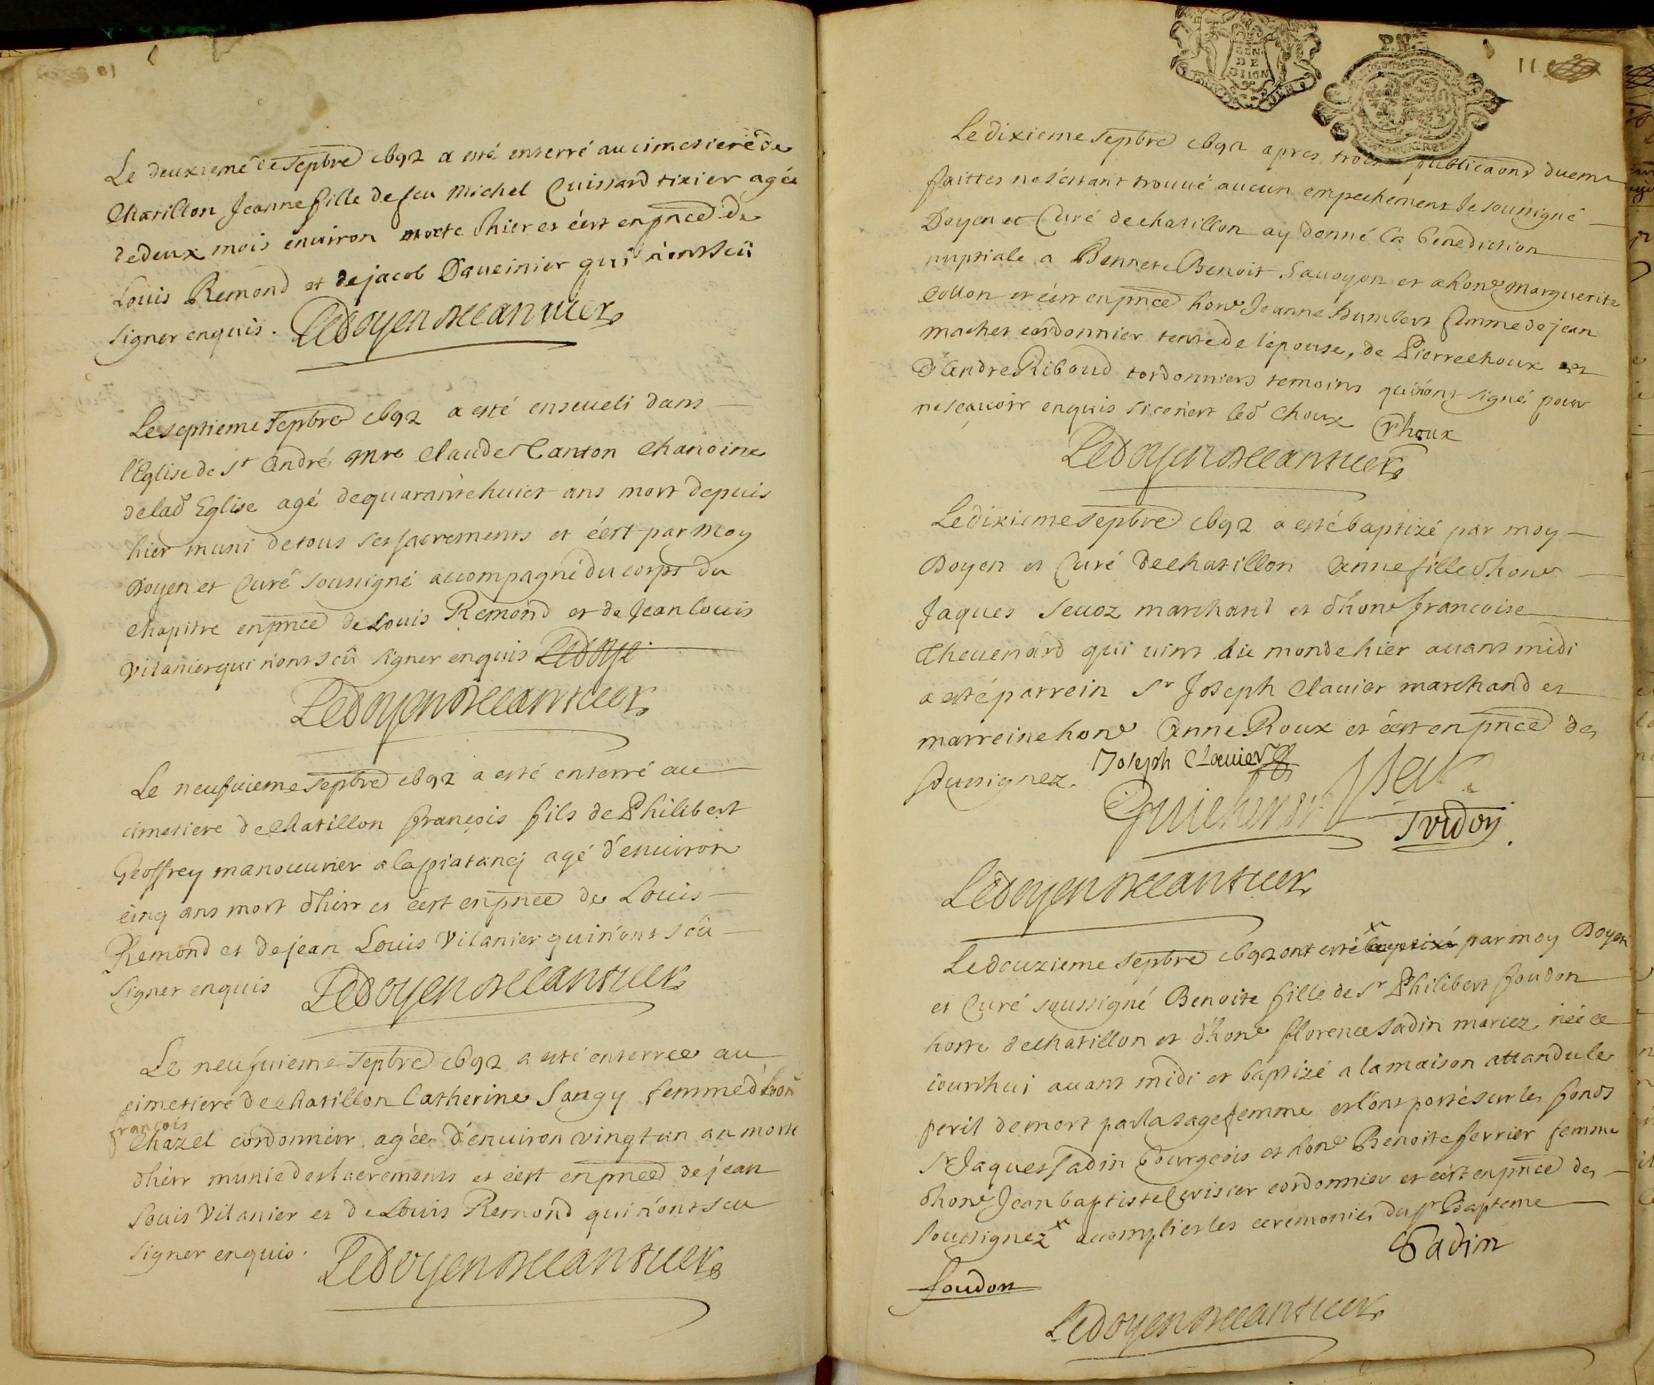 Le deuxieme de sepbre 1692 a esté enterré au cimetiere de
Chatillon Jeanne fille de feu Michel Cuissard tixier agée
de deux mois environ morte hier et c'est en pnce de
Louis Remond et de jacob Daveinier qui n'ont sceü
signer enquis. Ledoyen
Le septieme sepbre 1692 a esté enseveli dans
l'Eglise de St André Mre Claude Canton Chanoine
de lad Eglise agé de quarantehuict ans mort depuis
hier muni de tous ses sacrements et c'est par moy
Doyen et Curé soussigné accompagné du corps du
Chapitre en pnce de Louis Remond et de Jean Louis
Vilanier qui n'ont sceü signer enquis Ledoye
Ledoyen
Le neufvieme sepbre 1692 a esté enterré au
cimetiere de chatillon françois fils de Philibert
Geoffrey manouvrier a la agé d'environ
cinq ans mort d'hier et c'est en pnce de Louis
Remond et de jean Louis Vilanier qui n'ont sceü
signer enquis Ledoyen
Le neufvieme sepbre 1692 a esté enterree au
cimetiere de chatillon Catherine Sangy femme d'hon
françois
Chazel cordonnier agée d'environ vingt un an morte
d'hier munie des sacrements et c'est en pnce de jean
Louis Vilanier et de Louis Remond qui n'ont sceu
signer enquis. Ledoyen
11
Le dixieme sepbre 1692 apres trois publicaons duem
faittes ne s'estant trouvé aucun empechement Je soussigné
Doyen et Curé de chatillon ay donné la benediction
nuptiale a Bennet Benoit Savoyon et a hone Marguerite
Collon et c'est en pnce hone Jeanne Humbert femme de jean
machet cordonnier tente de l'epouse, de Pierre choux et
d'André Ribaud cordonniers temoins qui n'ont signé pour
ne sçavoir enquis si ce n'est led Choux Choux
Ledoyen
Le dixieme sepbre 1692 a esté baptizé par moy
Doyen et Curé de chatillon Anne fille d'hone
Jaques Sevoz marchand et d'hone francoise
Chevenard qui vint au monde hier avant midi
a esté parrein Sr Joseph Clavier marchand et
marreine hone Anne Roux et c'est en pnce des
soussignez. Joseph Clavier
Guichenon
Ledoyen
Le douzieme sepbre 1692 ont esté baptizé par moy Doyen
et Curé soussigné Benoite fille de Sr Philibert foudon
hoste de chatillon et d'hone florence Sadin mariez née ce
iourd'hui avant midi et baptizé a la maison attandu le
peril de mort par la sagefemme et l'ont porté sur les fonds
Sr Jaques Sadin Bourgeois et hone Benoite ferrier femme
d'hone Jean baptiste Cerisier cordonnier et c'est en pnce des
soussignez x accomplies les ceremonies du pr Bapteme
Sadin
foudon
Ledoyen